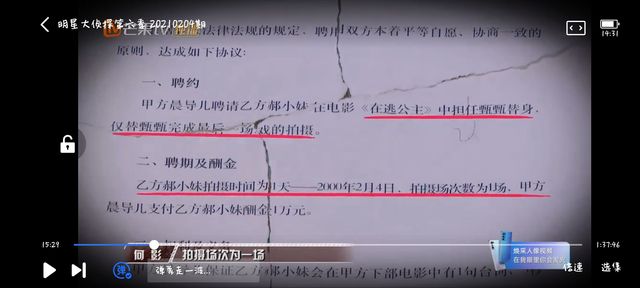 明星大侦探第六季 20210204期
14:31
芒果TV
法律法规的规定,聘用双方本着平等自愿、协商一致的
原则,达成如下协议:
一、聘约
甲方晨导儿聘请乙方郝小妹在电影《在逃公主》中担任甄甄替身,
仅替甄甄完成最后一场戏的拍摄。
二、聘期及酬金
乙方郝小妹拍摄时间为1天——2000年2月4日,拍摄场次数为1场,甲方
晨导儿支付乙方郝小妹酬金1万元。
15:29
1:37:46
何 影 拍摄场次为一场
保证乙方郝小妹会在甲方下部电影中有1句台词
焕采人像视频
弹
倍速
选集